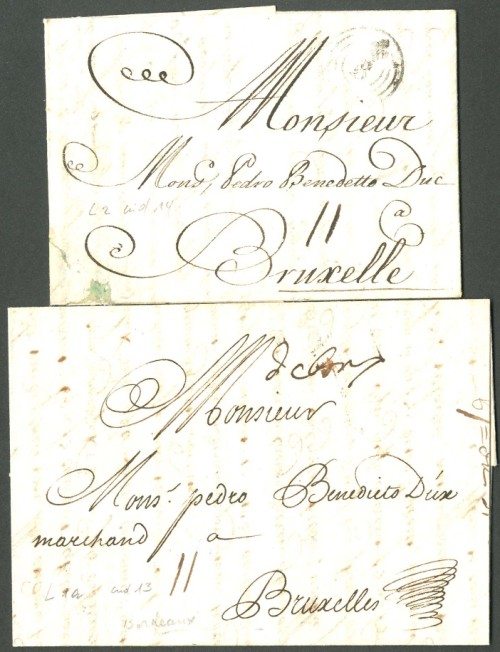 Monsieur
Mons. Pedro Benedetto Duc
L2 ind. 14
11
a
Bruxelle
Monsieur
Mons.r pedro Benedicto Dúx
marchand a
11
ind 13
Bruxelles
Bordeaux